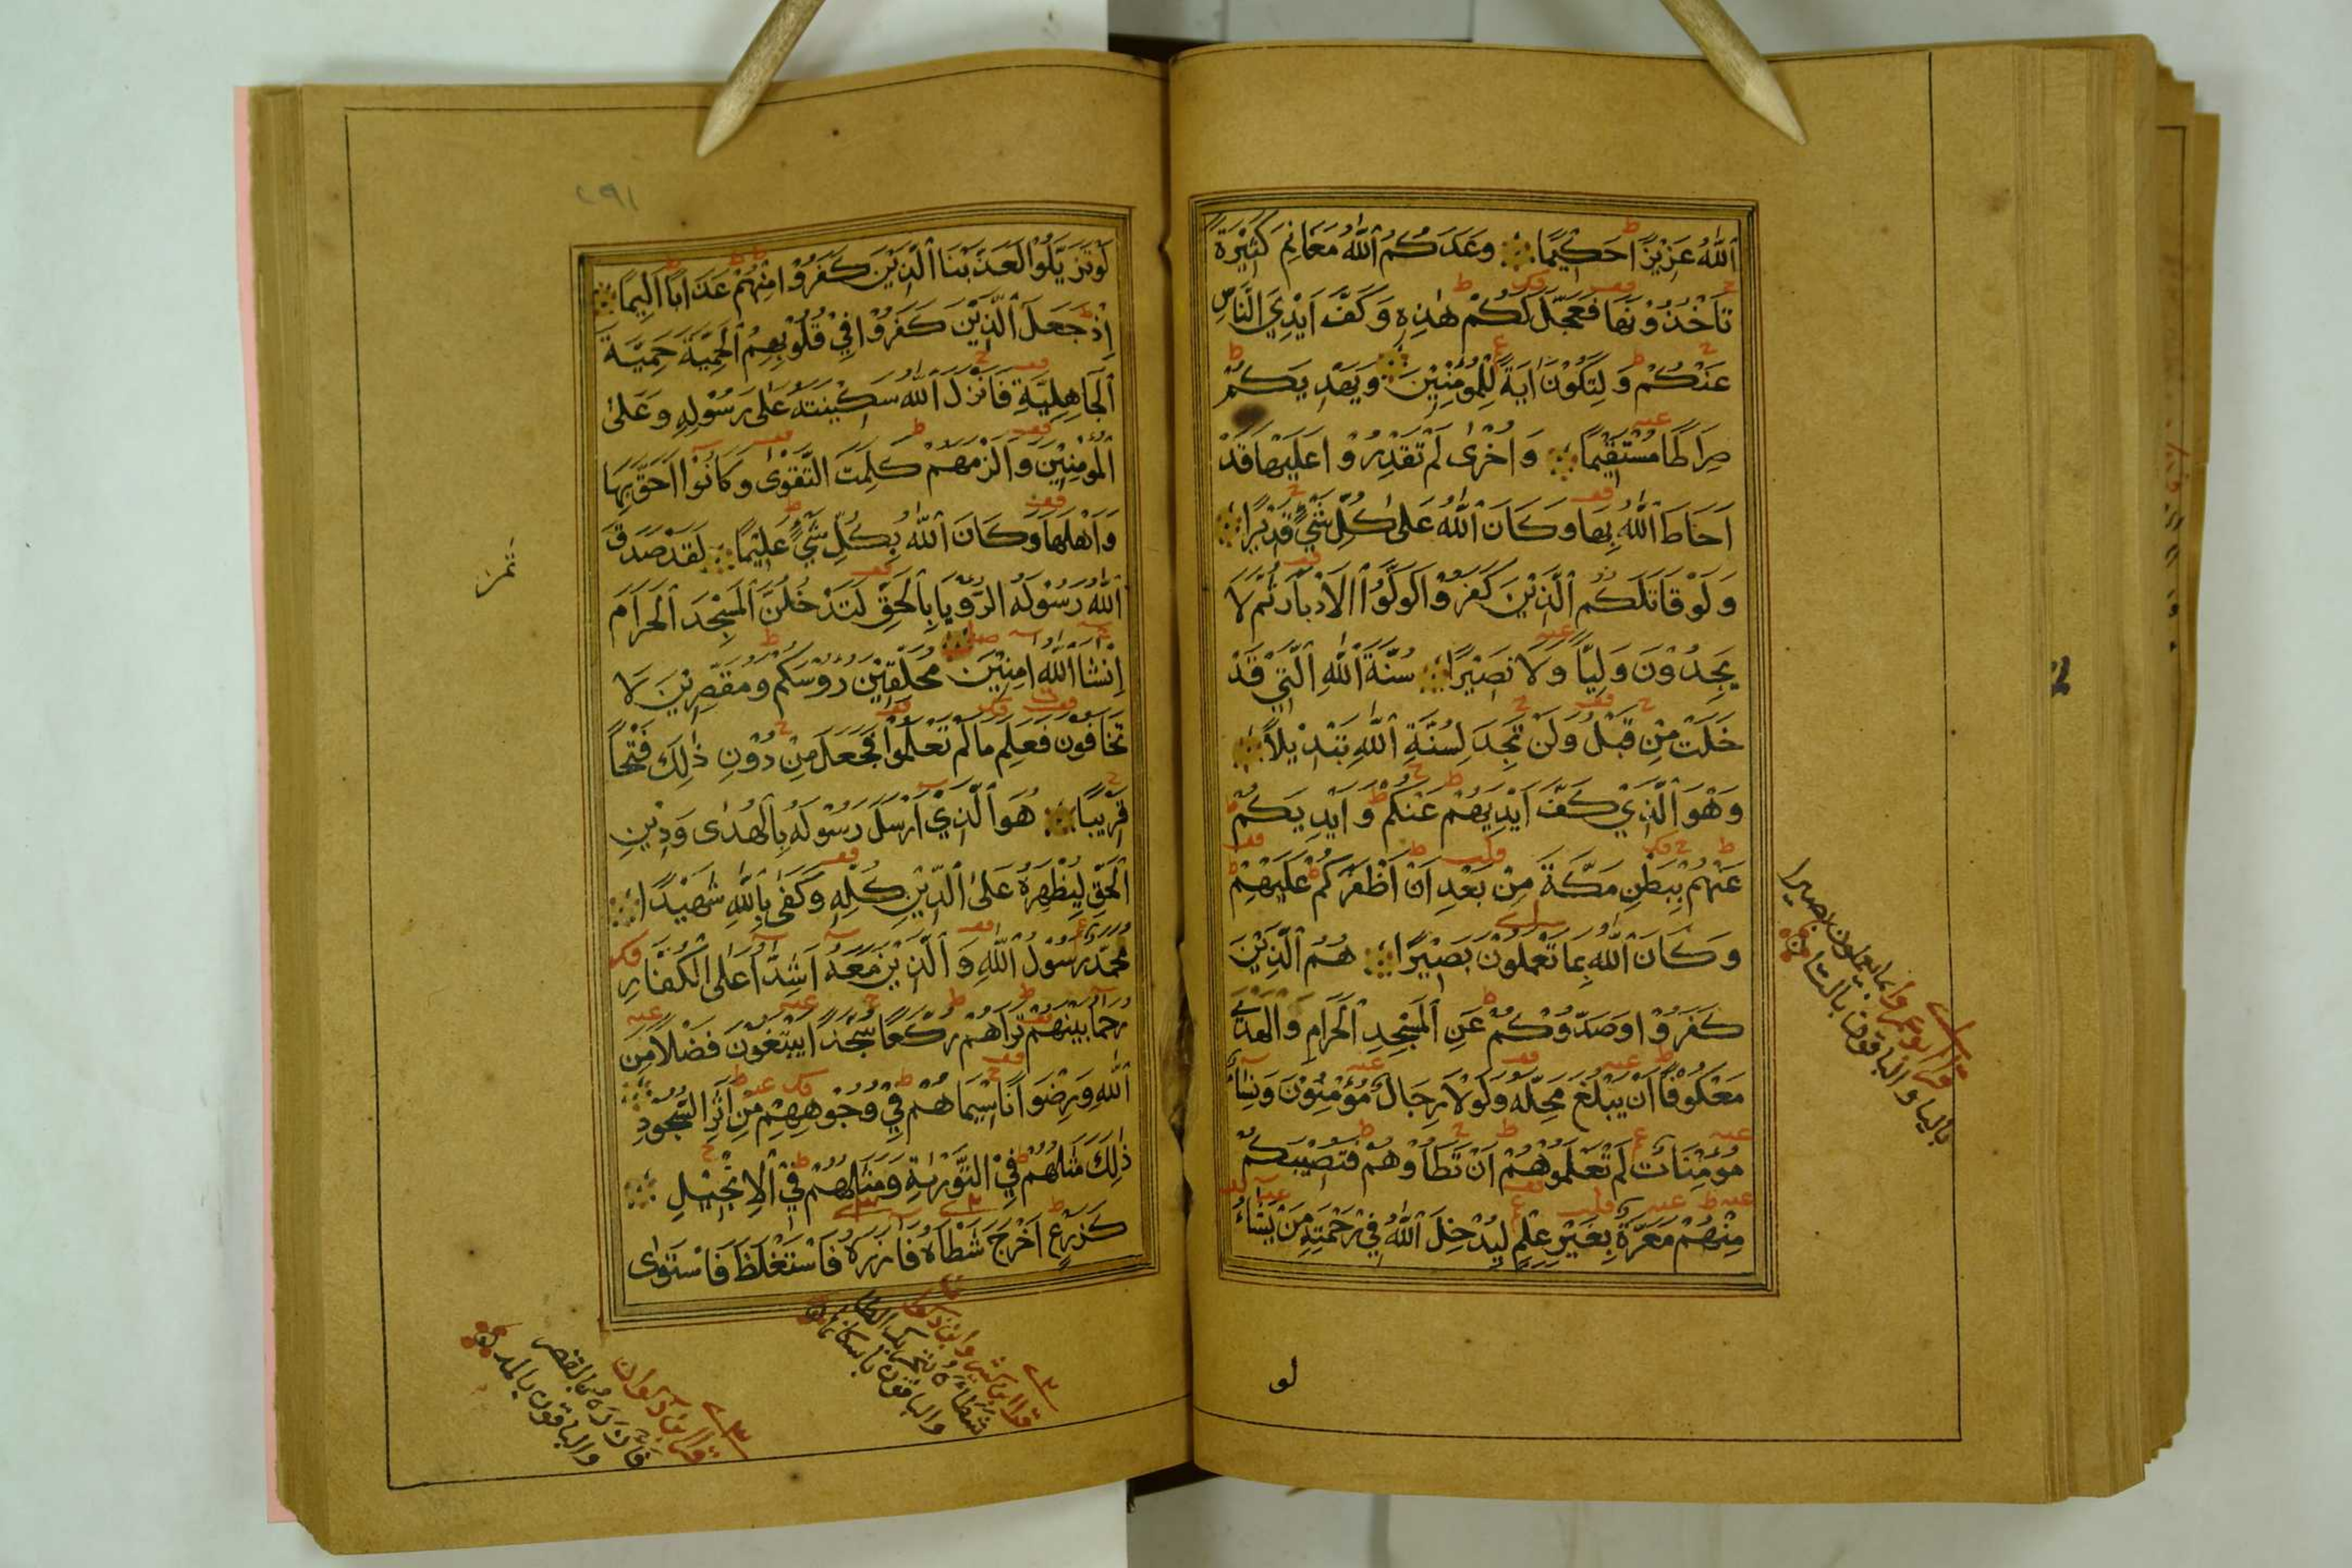 اَللّٰهُ عَزِيْزًا حَكِيْمًا وَعَدَكُمُ اللّٰهُ مَغَانِمَ كَثِيْرَةً
تَاْخُذُوْنَهَا فَعَجَّلَ لَكُمْ هٰذِهٖ وَكَفَّ اَيْدِيَ النَّاسِ
عَنْكُمْ وَلِتَكُوْنَ اٰيَةً لِلْمُؤْمِنِيْنَ وَيَهْدِيَكُمْ
صِرَاطًا مُسْتَقِيْمًا وَاُخْرٰى لَمْ تَقْدِرُوْا عَلَيْهَا قَدْ
اَحَاطَ اللّٰهُ بِهَا وَكَانَ اللّٰهُ عَلٰى كُلِّ شَيْءٍ قَدِيْرًا
وَلَوْ قَاتَلَكُمُ الَّذِيْنَ كَفَرُوْا لَوَلَّوُا الْاَدْبَارَ ثُمَّ لَا
يَجِدُوْنَ وَلِيًّا وَلَا نَصِيْرًا سُنَّةَ اللّٰهِ الَّتِيْ قَدْ
خَلَتْ مِنْ قَبْلُ وَلَنْ تَجِدَ لِسُنَّةِ اللّٰهِ تَبْدِيْلًا
وَهُوَ الَّذِيْ كَفَّ اَيْدِيَهُمْ عَنْكُمْ وَاَيْدِيَكُمْ
عَنْهُمْ بِبَطْنِ مَكَّةَ مِنْ بَعْدِ اَنْ اَظْفَرَكُمْ عَلَيْهِمْ
وَكَانَ اللّٰهُ بِمَا تَعْمَلُوْنَ بَصِيْرًا هُمُ الَّذِيْنَ
كَفَرُوْا وَصَدُّوْكُمْ عَنِ الْمَسْجِدِ الْحَرَامِ وَالْهَدْيَ
مَعْكُوْفًا اَنْ يَبْلُغَ مَحِلَّهٗ وَلَوْلَا رِجَالٌ مُؤْمِنُوْنَ وَنِسَاءٌ
مُؤْمِنَاتٌ لَمْ تَعْلَمُوْهُمْ اَنْ تَطَاُوْهُمْ فَتُصِيْبَكُمْ
مِنْهُمْ مَعَرَّةٌ بِغَيْرِ عِلْمٍ لِيُدْخِلَ اللّٰهُ فِيْ رَحْمَتِهٖ مَنْ يَشَاءُ
لو
قرا ابو عمرو بما يعملون بصيرا
باليا والباقون بالتا
٢٩١
لَوْ تَزَيَّلُوْا لَعَذَّبْنَا الَّذِيْنَ كَفَرُوْا مِنْهُمْ عَذَابًا اَلِيْمًا
اِذْ جَعَلَ الَّذِيْنَ كَفَرُوْا فِيْ قُلُوْبِهِمُ الْحَمِيَّةَ حَمِيَّةَ
الْجَاهِلِيَّةِ فَاَنْزَلَ اللّٰهُ سَكِيْنَتَهٗ عَلٰى رَسُوْلِهٖ وَعَلٰى
الْمُؤْمِنِيْنَ وَاَلْزَمَهُمْ كَلِمَتَ التَّقْوٰى وَكَانُوْا اَحَقَّ بِهَا
وَاَهْلَهَا وَكَانَ اللّٰهُ بِكُلِّ شَيْءٍ عَلِيْمًا لَقَدْ صَدَقَ
اللّٰهُ رَسُوْلَهُ الرُّوْيَا بِالْحَقِّ لَتَدْخُلُنَّ الْمَسْجِدَ الْحَرَامَ
اِنْشَا اللّٰهُ اٰمِنِيْنَ مُحَلِّقِيْنَ رُوُسَكُمْ وَمُقَصِّرِيْنَ لَا
تَخَافُوْنَ فَعَلِمَ مَا لَمْ تَعْلَمُوْا فَجَعَلَ مِنْ دُوْنِ ذٰلِكَ فَتْحًا
قَرِيْبًا هُوَ الَّذِيْ اَرْسَلَ رَسُوْلَهٗ بِالْهُدٰى وَدِيْنِ
الْحَقِّ لِيُظْهِرَهٗ عَلَى الدِّيْنِ كُلِّهٖ وَكَفٰى بِاللّٰهِ شَهِيْدًا
مُحَمَّدٌ رَسُوْلُ اللّٰهِ وَالَّذِيْنَ مَعَهٗ اَشِدَّاءُ عَلَى الْكُفَّارِ
رُحَمَا بَيْنَهُمْ تَرٰاهُمْ رُكَّعًا سُجَّدًا يَبْتَغُوْنَ فَضْلًا مِنَ
اللّٰهِ وَرِضْوَانًا سِيْمَاهُمْ فِيْ وُجُوْهِهِمْ مِنْ اَثَرِ السُّجُوْدِ
ذٰلِكَ مَثَلُهُمْ فِي التَّوْرٰىةِ وَمَثَلُهُمْ فِي الْاِنْجِيْلِ
كَزَرْعٍ اَخْرَجَ شَطْاَهٗ فَاٰزَرَهٗ فَاسْتَغْلَظَ فَاسْتَوٰى
قرا ابن كثير وابن ذكوان
شَطَاَهٗ بتحريك الطا
والباقون باسكانها
قرا ابن ذكوان
فَاَزَرَهٗ بالقصر
والباقون بالمد